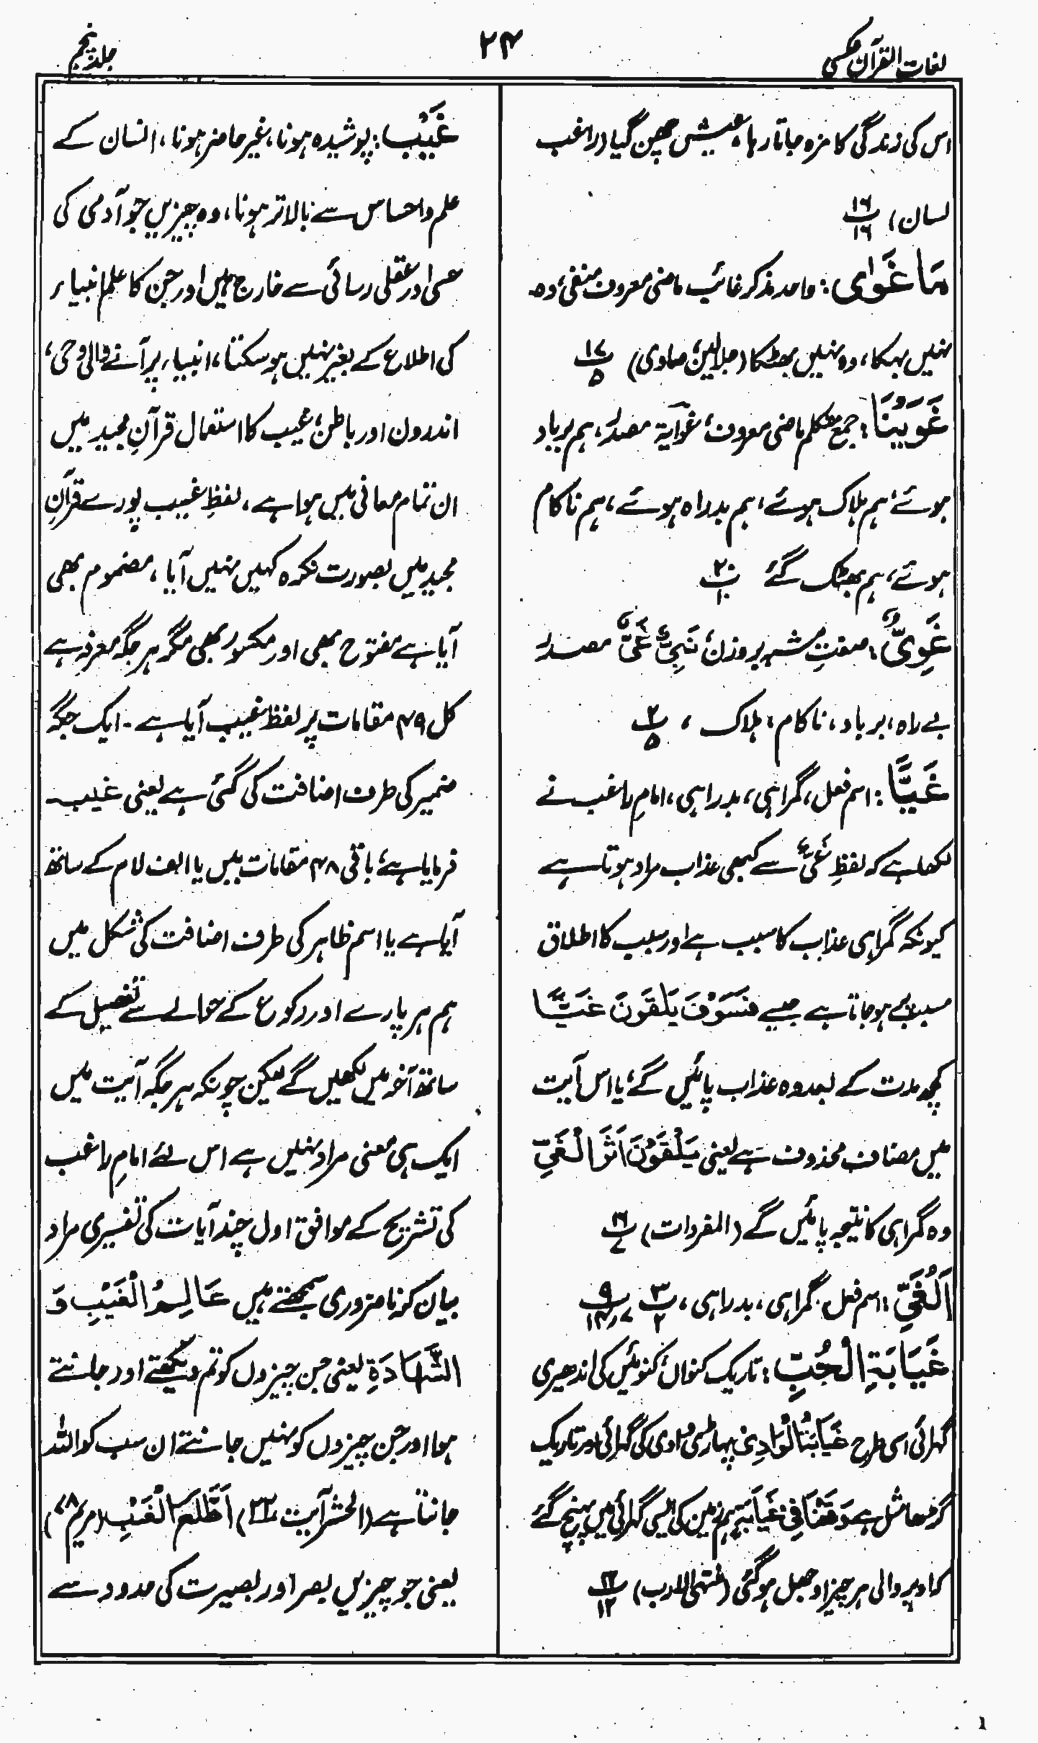 لغات القرآن عکسی
۲۴
جلد پنجم
اس کی زندگی کا مزہ جاتا رہا، عیش چھن گیا (راغب
لسان) ۱۶/۱۶
مَا غَوٰی: واحد مذکر غائب ماضی معروف منفی، وہ
نہیں بہکا، وہ نہیں بھٹکا (جلالین، صاوی) ۲۷/۵
غَوَیْنَا: جمع متکلم ماضی معروف، غوایة مصدر، ہم برباد
ہوئے، ہم ہلاک ہوئے، ہم بدراہ ہوئے، ہم ناکام
ہوئے، ہم بھٹک گئے ۲۰/۱۰
غَوِیٌّ: صفتِ مشبہ بروزن، نَبِیٌّ غَیٌّ مصدر
بے راہ، برباد، ناکام، ہلاک، ۲/۵
غَیًّا: اسم فعل، گمراہی، بدراہی، امامِ راغب نے
لکھا ہے کہ لفظِ غَیٌّ سے کبھی عذاب مراد ہوتا ہے
کیونکہ گمراہی عذاب کا سبب ہے اور سبب کا اطلاق
مسبب پر ہوجاتا ہے جیسے فَسَوْفَ یَلْقَوْنَ غَیًّا
کچھ مدت کے بعد وہ عذاب پائیں گے، یا اس آیت
میں مضاف محذوف ہے یعنی یَلْقَوْنَ اَثَرَ الْغَیِّ
وہ گمراہی کا نتیجہ پائیں گے (المفردات) ۱۶/۷
اَلْغَیِّ: اسم فعل. گمراہی، بدراہی، ۳/۲ ۹/۷،۱۴
غَیَابَةِ الْجُبِّ: تاریک کنواں، کنوئیں کی اندھیری
گہرائی اسی طرح غَیَابَةُ الْوَادِیْ پہاڑی وادی کی گہرائی اور تاریک
گڑھا مثل ہے وَقَعْنَا فِیْ غَیَابَةٍ ہم زمین کی ایسی گہرائی میں پہنچ گئے
کہ اوپر والی ہر چیز اوجھل ہوگئی (منتہی الارب) ۱۲/۱۲
غَیْب: پوشیدہ ہونا، غیر حاضر ہونا، انسان کے
علم و احساس سے بالاتر ہونا، وہ چیزیں جو آدمی کی
حسی اور عقلی رسائی سے خارج ہیں اور جن کا علم انبیاء
کی اطلاع کے بغیر نہیں ہوسکتا، انبیاء پر آنے والی وحی،
اندرون اور باطن، غیب کا استعمال قرآنِ مجید میں
ان تمام معانی میں ہوا ہے، لفظِ غیب پورے قرآنِ
مجید میں بصورت نکرہ کہیں نہیں آیا، مضموم بھی
آیا ہے مفتوح بھی اور مکسور بھی مگر ہر جگہ معرفہ ہے
کل ۴۹ مقامات پر لفظ غیب آیا ہے۔ ایک جگہ
ضمیر کی طرف اضافت کی گئی ہے یعنی غیبہ
فرمایا ہے، باقی ۴۸ مقامات میں یا الف لام کے ساتھ
آیا ہے یا اسم ظاہر کی طرف اضافت کی شکل میں
ہم ہر پارے اور رکوع کے حوالے سے تفصیل کے
ساتھ آخر میں لکھیں گے لیکن چونکہ ہر جگہ آیت میں
ایک ہی معنی مراد نہیں ہے اس لئے امامِ راغب
کی تشریح کے موافق اول چند آیات کی تفسیری مراد
بیان کرنا ضروری سمجھتے ہیں عَالِمُ الْغَیْبِ وَ
الشَّہَادَةِ یعنی جن چیزوں کو تم دیکھتے اور جانتے
ہو اور جن چیزوں کو نہیں جانتے ان سب کو اللہ
جانتا ہے (الحشر آیت ۲۲) اَطَّلَعَ الْغَیْبَ (مریم ۷۸)
یعنی جو چیزیں بصر اور بصیرت کی حدود سے